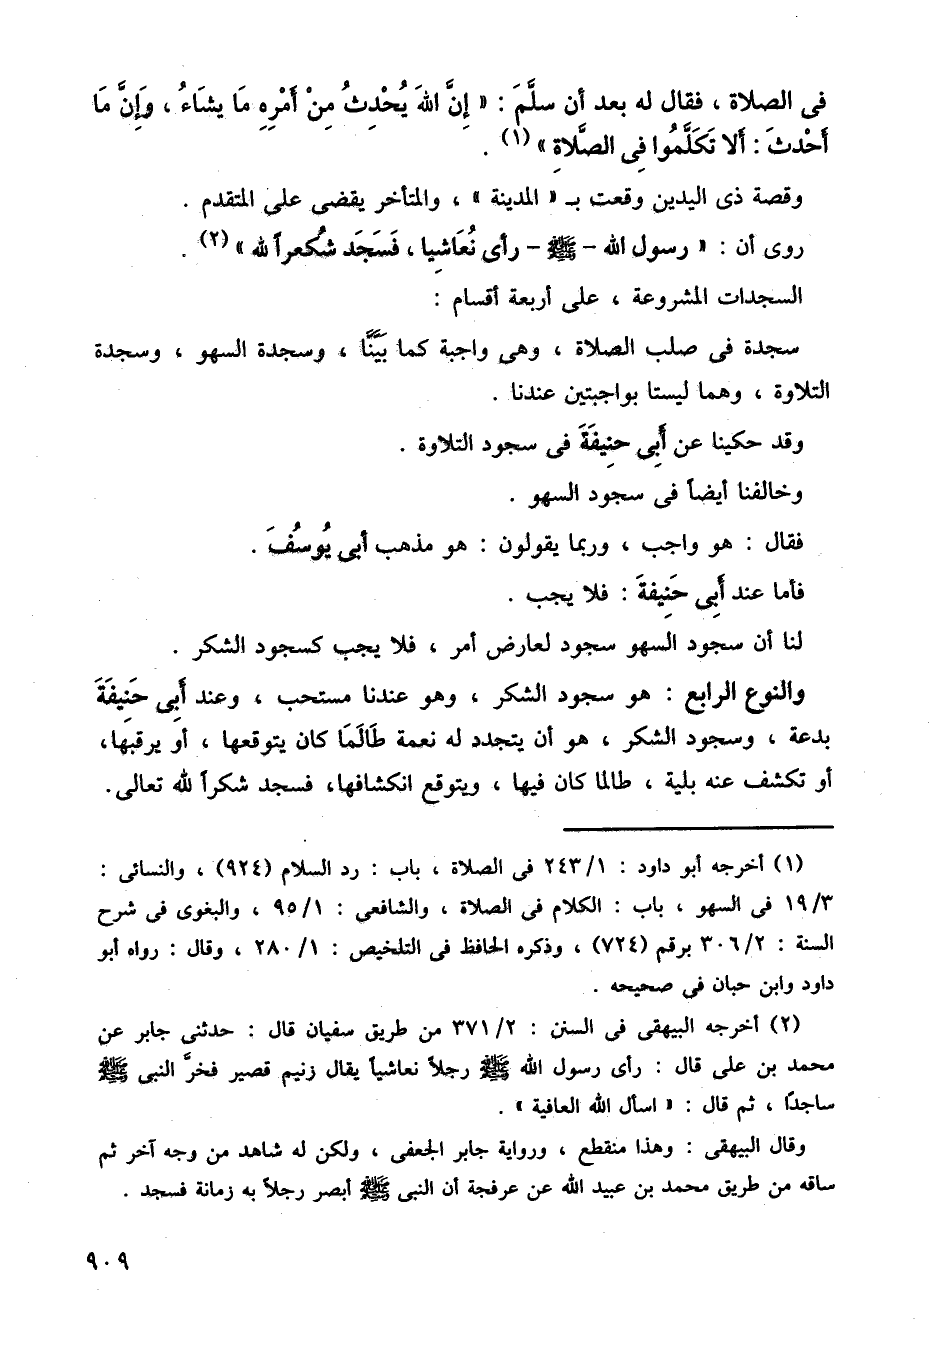 فى الصلاة ، فقال له بعد أن سلَّمَ : « إِنَّ اللهَ يُحْدِثُ مِنْ أَمْرِهِ مَا يشَاءُ ، وَإِنَّ مَا
أَحْدثَ : أَلا تَكَلَّمُوا فِى الصَّلاةِ » (١) .
وقصة ذى اليدين وقعت بـ « المدينة » ، والمتأخر يقضى على المتقدم .
روى أن : « رسول الله – ﷺ – رأى نُعَاشِيا ، فَسَجَد شُكعراً لله » (٢) .
السجدات المشروعة ، على أربعة أقسام :
سجدة فى صلب الصلاة ، وهى واجبة كما بَيَّنَّا ، وسجدة السهو ، وسجدة
التلاوة ، وهما ليستا بواجبتين عندنا .
وقد حكينا عن أَبِى حنِيفَةَ فى سجود التلاوة .
وخالفنا أيضاً فى سجود السهو .
فقال : هو واجب ، وربما يقولون : هو مذهب أبى يُوسُفَ .
فأما عند أَبِى حَنِيفةَ : فلا يجب .
لنا أن سجود السهو سجود لعارض أمر ، فلا يجب كسجود الشكر .
والنوع الرابع : هو سجود الشكر ، وهو عندنا مستحب ، وعند أَبِى حَنِيفَةَ
بدعة ، وسجود الشكر ، هو أن يتجدد له نعمة طَالَمَا كان يتوقعها ، أو يرقبها،
أو تكشف عنه بلية ، طالما كان فيها ، ويتوقع انكشافها، فسجد شكراً لله تعالى.
(١) أخرجه أبو داود : ٢٤٣/١ فى الصلاة ، باب : رد السلام (٩٢٤) ، والنسائى :
١٩/٣ فى السهو ، باب : الكلام فى الصلاة ، والشافعي : ٩٥/١ ، والبغوى فى شرح
السنة : ٣٠٦/٢ برقم (٧٢٤) ، وذكره الحافظ فى التلخيص : ٢٨٠/١ ، وقال : رواه أبو
داود وابن حبان فى صحيحه .
(٢) أخرجه البيهقى فى السنن : ٣٧١/٢ من طريق سفيان قال : حدثنى جابر عن
محمد بن على قال : رأى رسول الله ﷺ رجلاً نعاشياً يقال زنيم قصير فخرَّ النبى ﷺ
ساجدًا ، ثم قال : « اسأل الله العافية » .
وقال البيهقى : وهذا منقطع ، ورواية جابر الجعفى ، ولكن له شاهد من وجه آخر ثم
ساقه من طريق محمد بن عبيد الله عن عرفجة أن النبى ﷺ أبصر رجلاً به زمانة فسجد .
٩٠٩